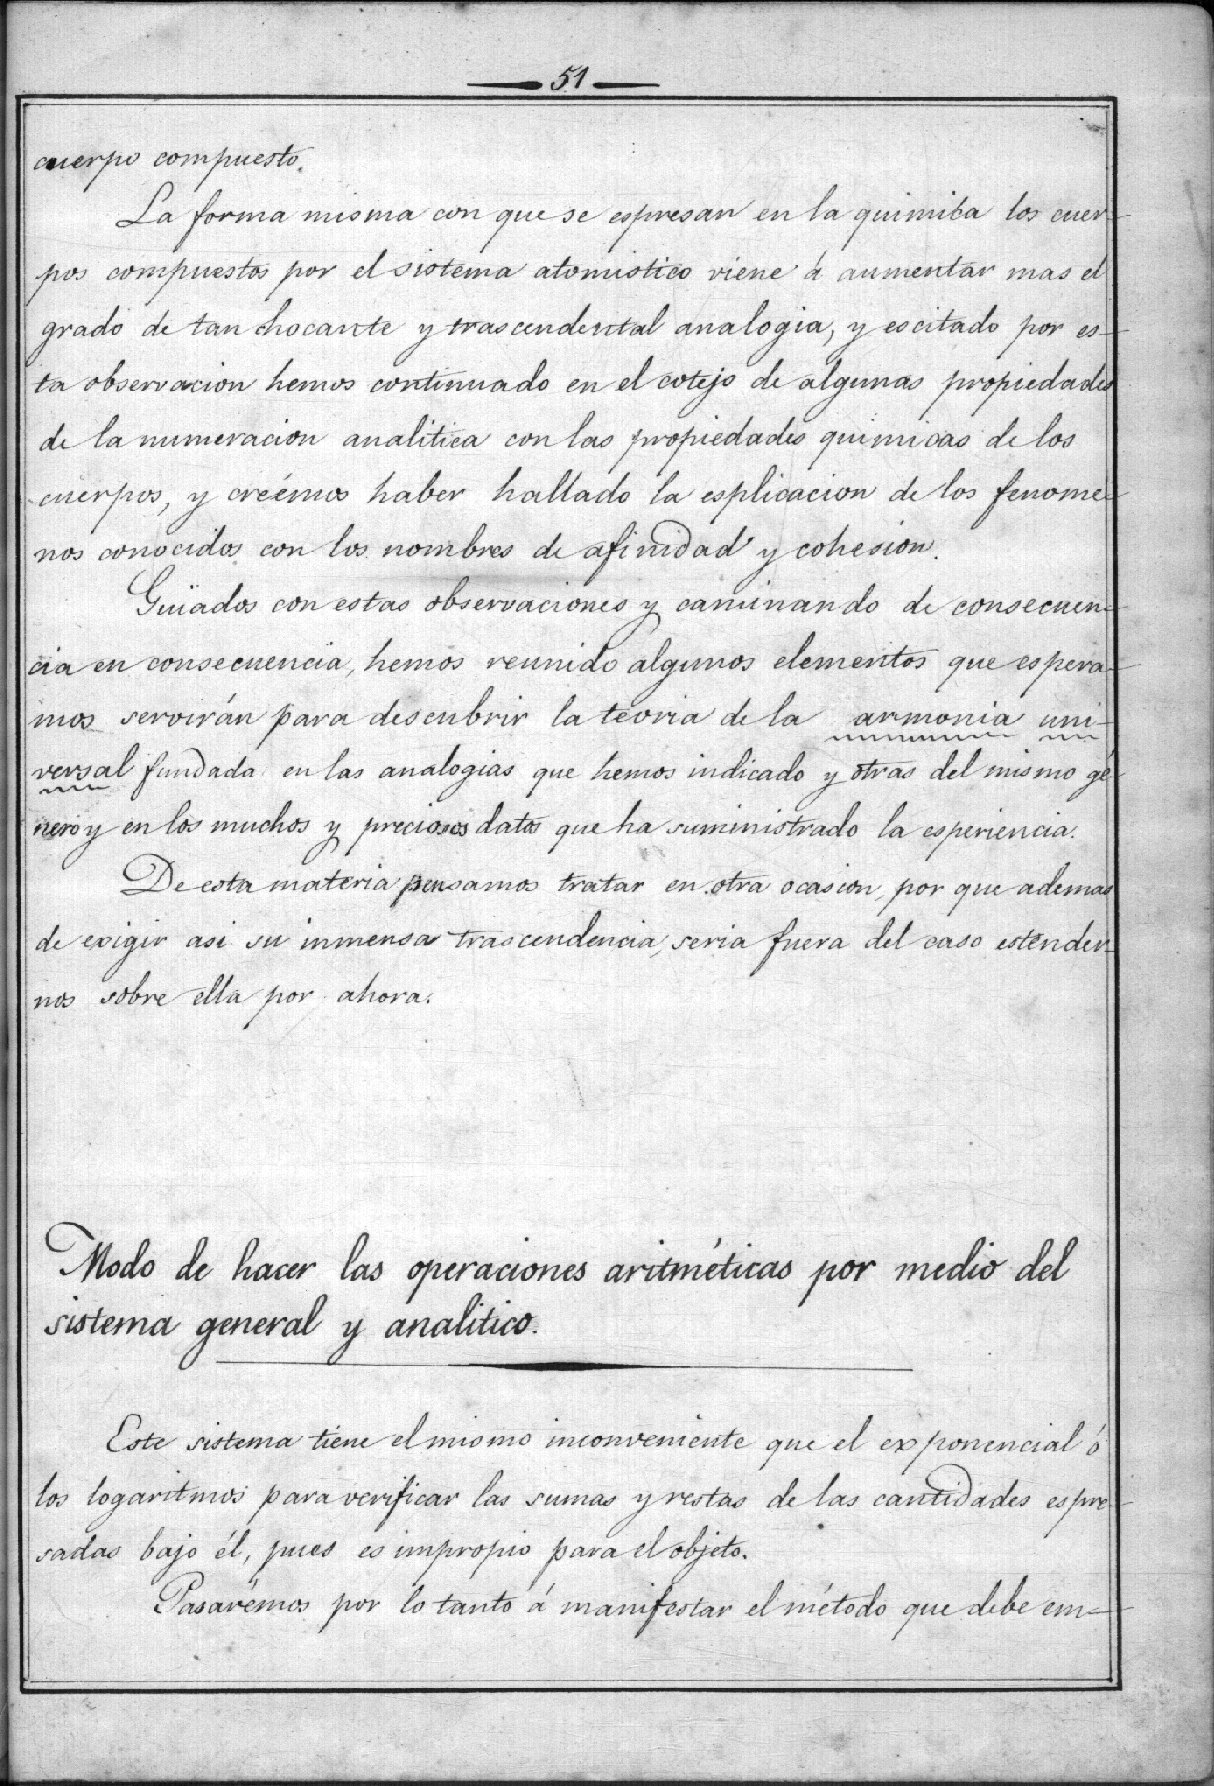 51
cuerpo compuesto.
La forma misma con que se espresan en la quimica los cuer-
pos compuestos por el sistema atomistico viene á aumentar mas el
grado de tan chocante y trascendental analogia, y escitado por es-
ta observacion hemos continuado en el cotejo de algunas propiedades
de la numeracion analitica con las propiedades quimicas de los
cuerpos, y creémos haber hallado la esplicacion de los fenome-
nos conocidos con los nombres de afinidad y cohesion.
Guiados con estas observaciones y caminando de consecuen-
cia en consecuencia, hemos reunido algunos elementos que espera-
mos servirán para descubrir la teoria de la armonia uni-
versal fundada en las analogias que hemos indicado y otras del mismo gé-
nero y en los muchos y preciosos datos que ha suministrado la esperiencia.
De esta materia pensamos tratar en otra ocasion, por que ademas
de exigir asi su inmensa trascendencia, seria fuera del caso estender-
nos sobre ella por ahora.
Modo de hacer las operaciones aritméticas por medio del
sistema general y analitico.
Este sistema tiene el mismo inconveniente que el exponencial ó
los logaritmos para verificar las sumas y restas de las cantidades espre-
sadas bajo él, pues es impropio para el objeto.
Pasarémos por lo tanto á manifestar el método que debe em-